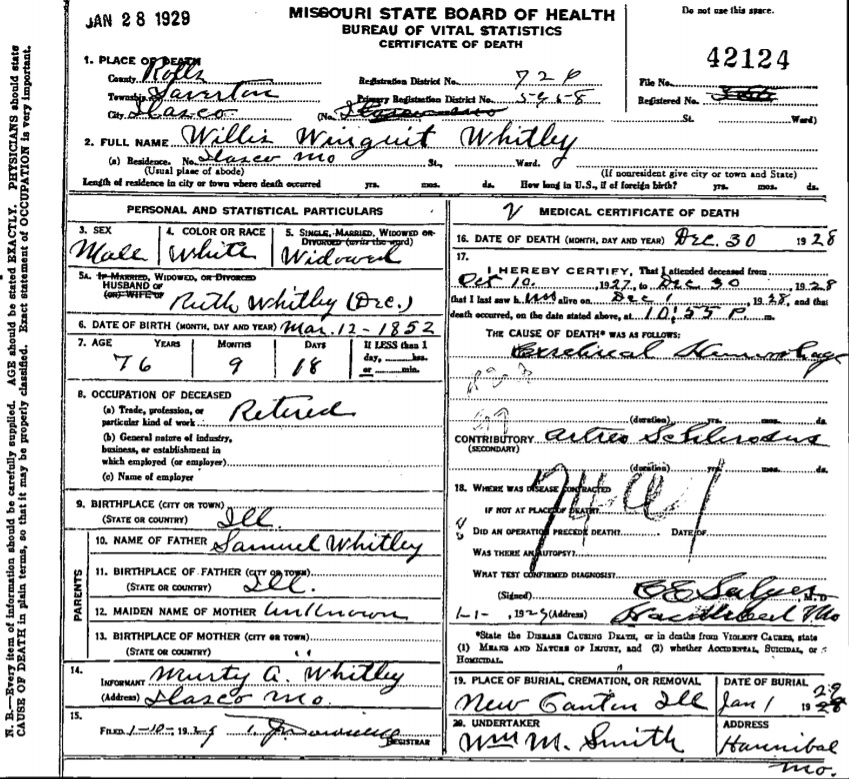 JAN 28 1929
MISSOURI STATE BOARD OF HEALTH
BUREAU OF VITAL STATISTICS
CERTIFICATE OF DEATH
Do not use this space.
42124
1. PLACE OF DEATH
County Ralls Registration District No. 728 File No.
Township Saverton Primary Registration District No. 5958 Registered No.
City Ilasco (No. St. Ward)
2. FULL NAME Willis Winquit Whitley
(a) Residence. No. Ilasco Mo St., Ward.
(Usual place of abode) (If nonresident give city or town and State)
Length of residence in city or town where death occurred yrs. mos. ds. How long in U.S., if of foreign birth? yrs. mos. ds.
PERSONAL AND STATISTICAL PARTICULARS
3. SEX 4. COLOR OR RACE 5. SINGLE, MARRIED, WIDOWED OR DIVORCED (write the word)
Male White Widowed
5A. IF MARRIED, WIDOWED, OR DIVORCED
HUSBAND OF
(OR) WIFE OF Ruth Whitley (Dec.)
6. DATE OF BIRTH (MONTH, DAY AND YEAR) Mar. 12-1852
7. AGE YEARS MONTHS DAYS If LESS than 1
day, hrs.
or min.
76 9 18
8. OCCUPATION OF DECEASED
(a) Trade, profession, or
particular kind of work Retired
(b) General nature of industry,
business, or establishment in
which employed (or employer)
(c) Name of employer
9. BIRTHPLACE (CITY OR TOWN)
(STATE OR COUNTRY) Ill.
PARENTS
10. NAME OF FATHER Samuel Whitley
11. BIRTHPLACE OF FATHER (CITY OR TOWN)
(STATE OR COUNTRY) Ill.
12. MAIDEN NAME OF MOTHER Unknown
13. BIRTHPLACE OF MOTHER (CITY OR TOWN)
(STATE OR COUNTRY) "
14.
INFORMANT Murty A. Whitley
(Address) Ilasco Mo.
15.
FILED 1-10-, 1929
REGISTRAR
2 MEDICAL CERTIFICATE OF DEATH
16. DATE OF DEATH (MONTH, DAY AND YEAR) Dec. 30 1928
17.
I HEREBY CERTIFY, That I attended deceased from
Oct 10, 1927, to Dec 30, 1928
that I last saw him alive on Dec 1, 1928, and that
death occurred, on the date stated above, at 10:55 P. m.
THE CAUSE OF DEATH* WAS AS FOLLOWS:
Hemorrhage
(duration) yrs. mos. ds.
CONTRIBUTORY Artreo Schlerosus
(SECONDARY)
(duration) yrs. mos. ds.
18. WHERE WAS DISEASE CONTRACTED
IF NOT AT PLACE OF DEATH?
DID AN OPERATION PRECEDE DEATH? DATE OF
WAS THERE AN AUTOPSY?
WHAT TEST CONFIRMED DIAGNOSIS?
(Signed) M. D
1-1-, 1929 (Address) Hannibal Mo
*State the DISEASE CAUSING DEATH, or in deaths from VIOLENT CAUSES, state
(1) MEANS AND NATURE OF INJURY, and (2) whether ACCIDENTAL, SUICIDAL, or
HOMICIDAL.
19. PLACE OF BURIAL, CREMATION, OR REMOVAL DATE OF BURIAL
New Canton Ill Jan 1 1929
20. UNDERTAKER ADDRESS
Wm M. Smith Hannibal
Mo.
N. B.—Every item of information should be carefully supplied. AGE should be stated EXACTLY. PHYSICIANS should state
CAUSE OF DEATH in plain terms, so that it may be properly classified. Exact statement of OCCUPATION is very important.